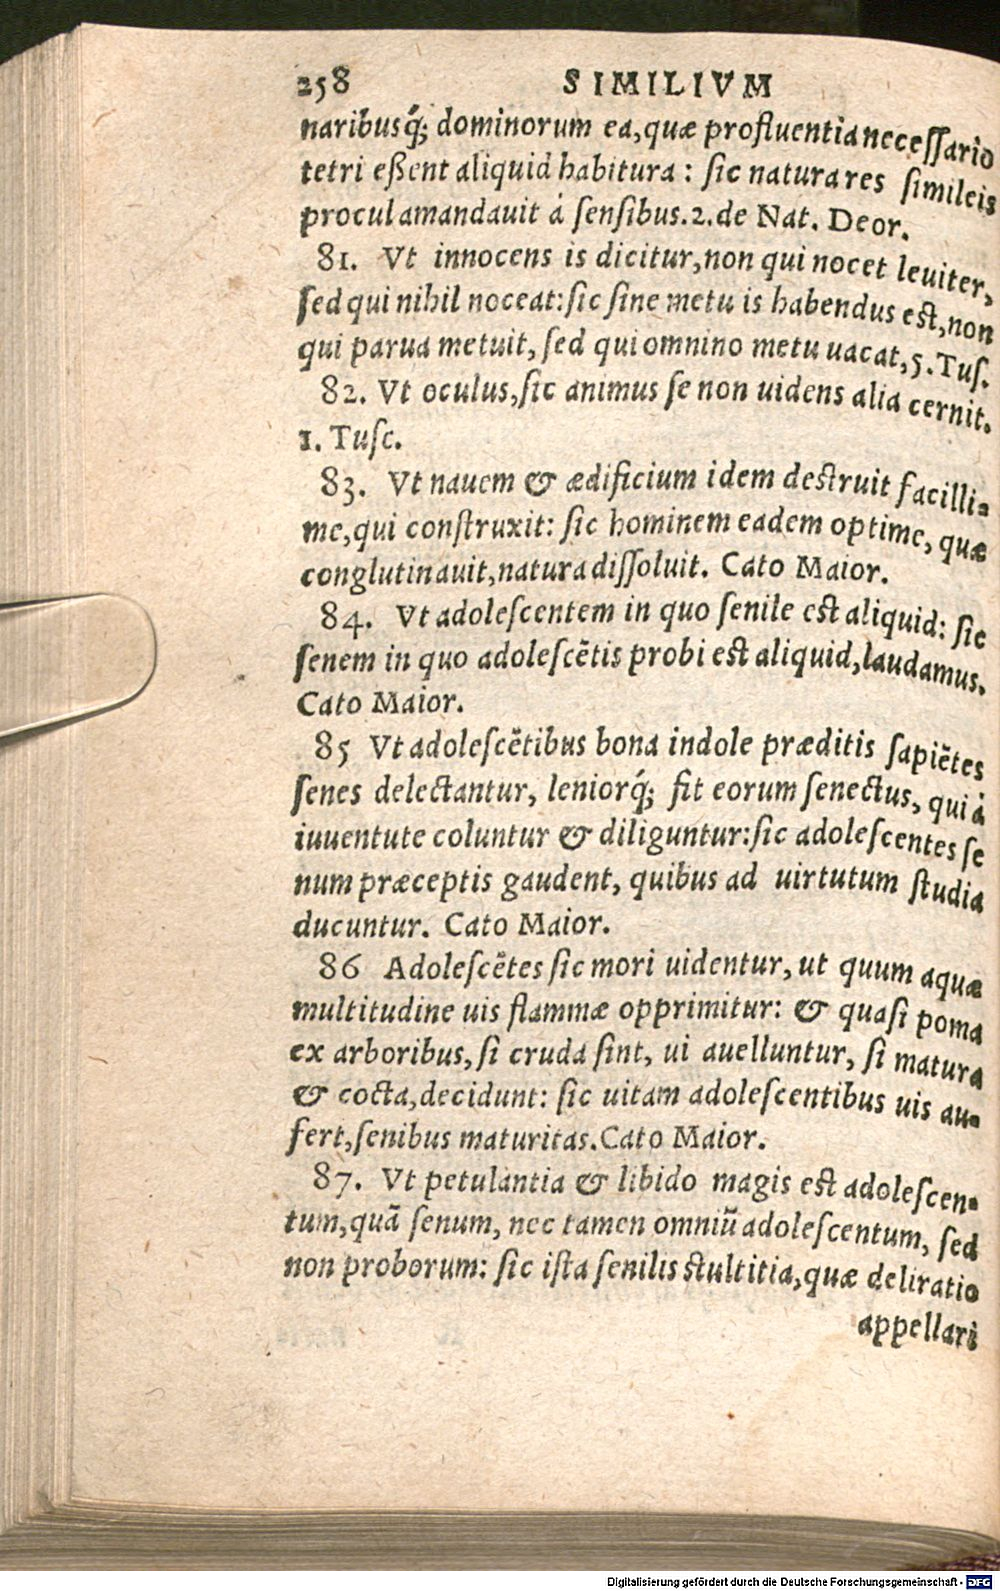 258 SIMILIVM
naribusq́; dominorum ea, quæ profluentia necessario
tetri eßent aliquid habitura: sic natura res simileis
procul amandauit á sensibus. 2. de Nat. Deor.
81. Vt innocens is dicitur, non qui nocet leuiter,
sed qui nihil noceat: sic sine metu is habendus est, non
qui parua metuit, sed qui omnino metu uacat, 5. Tus.
82. Vt oculus, sic animus se non uidens alia cernit.
1. Tusc.
83. Vt nauem & ædificium idem destruit facilli-
me, qui construxit: sic hominem eadem optime, quæ
conglutinauit, natura dissoluit. Cato Maior.
84. Vt adolescentem in quo senile est aliquid: sic
senem in quo adolescẽtis probi est aliquid, laudamus.
Cato Maior.
85 Vt adolescẽtibus bona indole præditis sapiẽtes
senes delectantur, leniorq́; fit eorum senectus, qui á
iuuentute coluntur & diliguntur: sic adolescentes se
num præceptis gaudent, quibus ad uirtutum studia
ducuntur. Cato Maior.
86 Adolescẽtes sic mori uidentur, ut quum aquæ
multitudine uis flammæ opprimitur: & quasi poma
ex arboribus, si cruda sint, ui auelluntur, si matura
& cocta, decidunt: sic uitam adolescentibus uis au-
fert, senibus maturitas. Cato Maior.
87. Vt petulantia & libido magis est adolescen-
tum, quã senum, nec tamen omniũ adolescentum, sed
non proborum: sic ista senilis stultitia, quæ deliratio
appellari
Digitalisierung gefördert durch die Deutsche Forschungsgemeinschaft - DFG